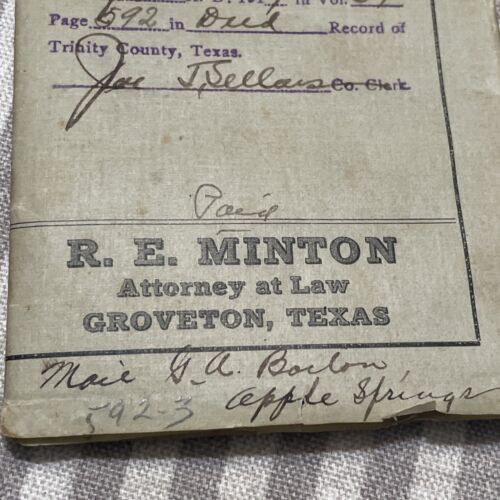 in Vol.
Page 592 in Deed Record of
Trinity County, Texas.
Joe J. Sellars Co. Clerk
Paid
R. E. MINTON
Attorney at Law
GROVETON, TEXAS
Mail G. A. Barton,
Apple Springs
592-3